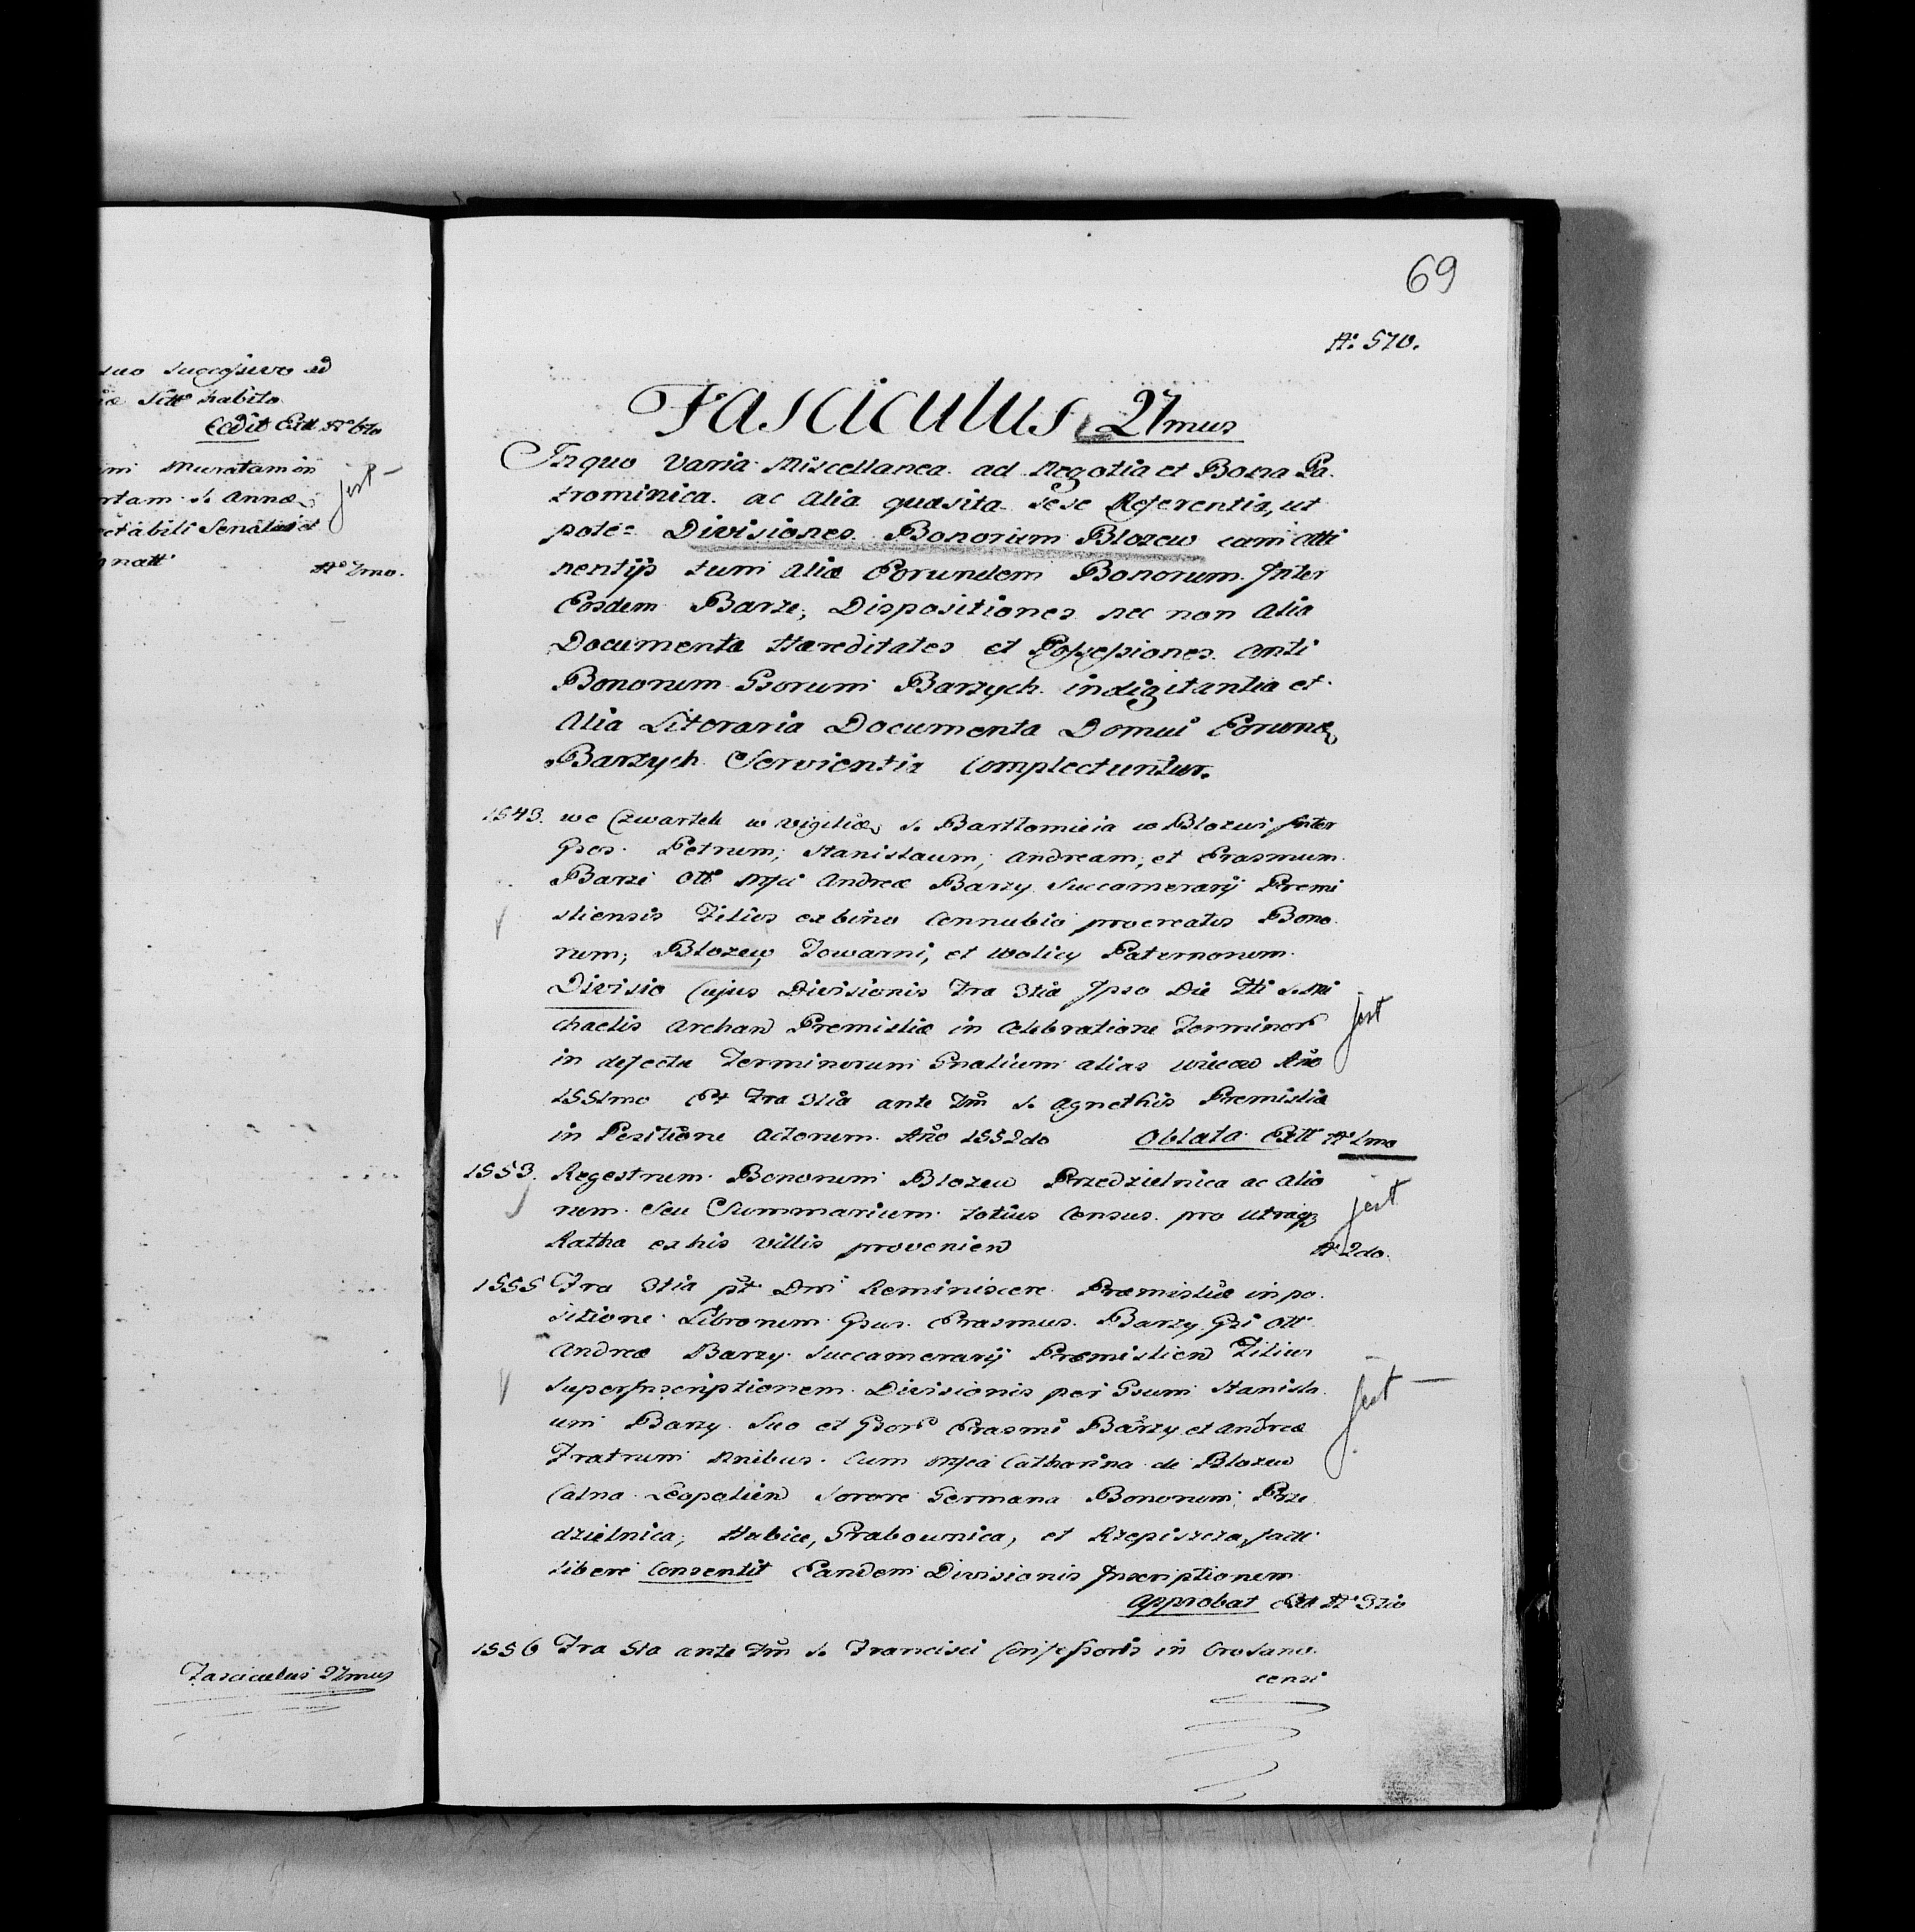 suo successive ad
Sttt habito
Cedit Extt No 6to
Muratam in
rtam S. Annæ
jest
ctabili Senatui et
natt
No 7mo.
Fasciculus 27mus
69
No. 570.
Fasciculus 27mus
In quo Varia Miscellanea ad Negotia et Bona Pa
trominica ac alia quæsita sese Referentia, ut
pote: Divisiones Bonorum Blozew cum atti
nentijs tum aliæ Eorundem Bonorum Inter
Eosdem Barze, Dispositiones nec non alia
Documenta Hæreditates et Possessiones anti
Bonorum Gsorum Barzych indigitantia et
alia Literaria Documenta Domui Eorund
Barzych Servientia Complectuntur.
1543. we Czwartek w vigiliæ S. Bartłomieia w Blozwi Inter
Gsos Petrum, Stanislaum, Andream, et Erasmum
Barzi Ott Mfci Andreæ Barzy Succamerarij Premi
sliensis Filios ex bino Connubio procreatos Bono
rum, Blozew, Towarni, et Wolicy Paternorum
Divisio Cujus Divisionis Fra 3tia Ipso Die Fti S. Mi
chaelis Archan Premisliæ in Celebratione Terminor
in defectu Terminorum Gnalium alias wiecow Ano
1551mo Et Fra 3tia ante Fm S. Agnethis Premisliæ
in Positione Actorum Ano 1552do Oblata Extt No 1mo
jest
1553. Regestrum Bonorum Blozew Przedzielnica ac alio
rum Seu Summarium totius Census pro utraq
Ratha ex his Villis provenien
No 2do.
jest
1555 Fra 3tia pt Dm Reminiscere Præmisliæ in po
sitione Librorum Gsus Erasmus Barzy Gsi Ott
Andreæ Barzy Succamerarij Præmislien Filius
Super Inscriptionem Divisionis per Gsum Stanisla
um Barzy Suo et Gsor Erasmi Barzy et Andreæ
Fratrum Nnibus Cum Mfca Catharina de Blozew
Calna Leopolien Sorore Germana Bonorum Prze
dzielnica, Hubice, Grabownica, et Rzepiszcza, fact
libere Consentit Eandem Divisionis Inscriptionem
approbat Extt No 3tio
jest
1556 Fra 5ta ante Fm S. Francisci Confessoris in Cro Sano
censi